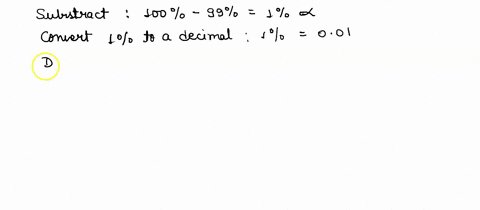 Substract : 100% - 99% = 1% α
Convert 1% to a decimal : 1% = 0.01
D